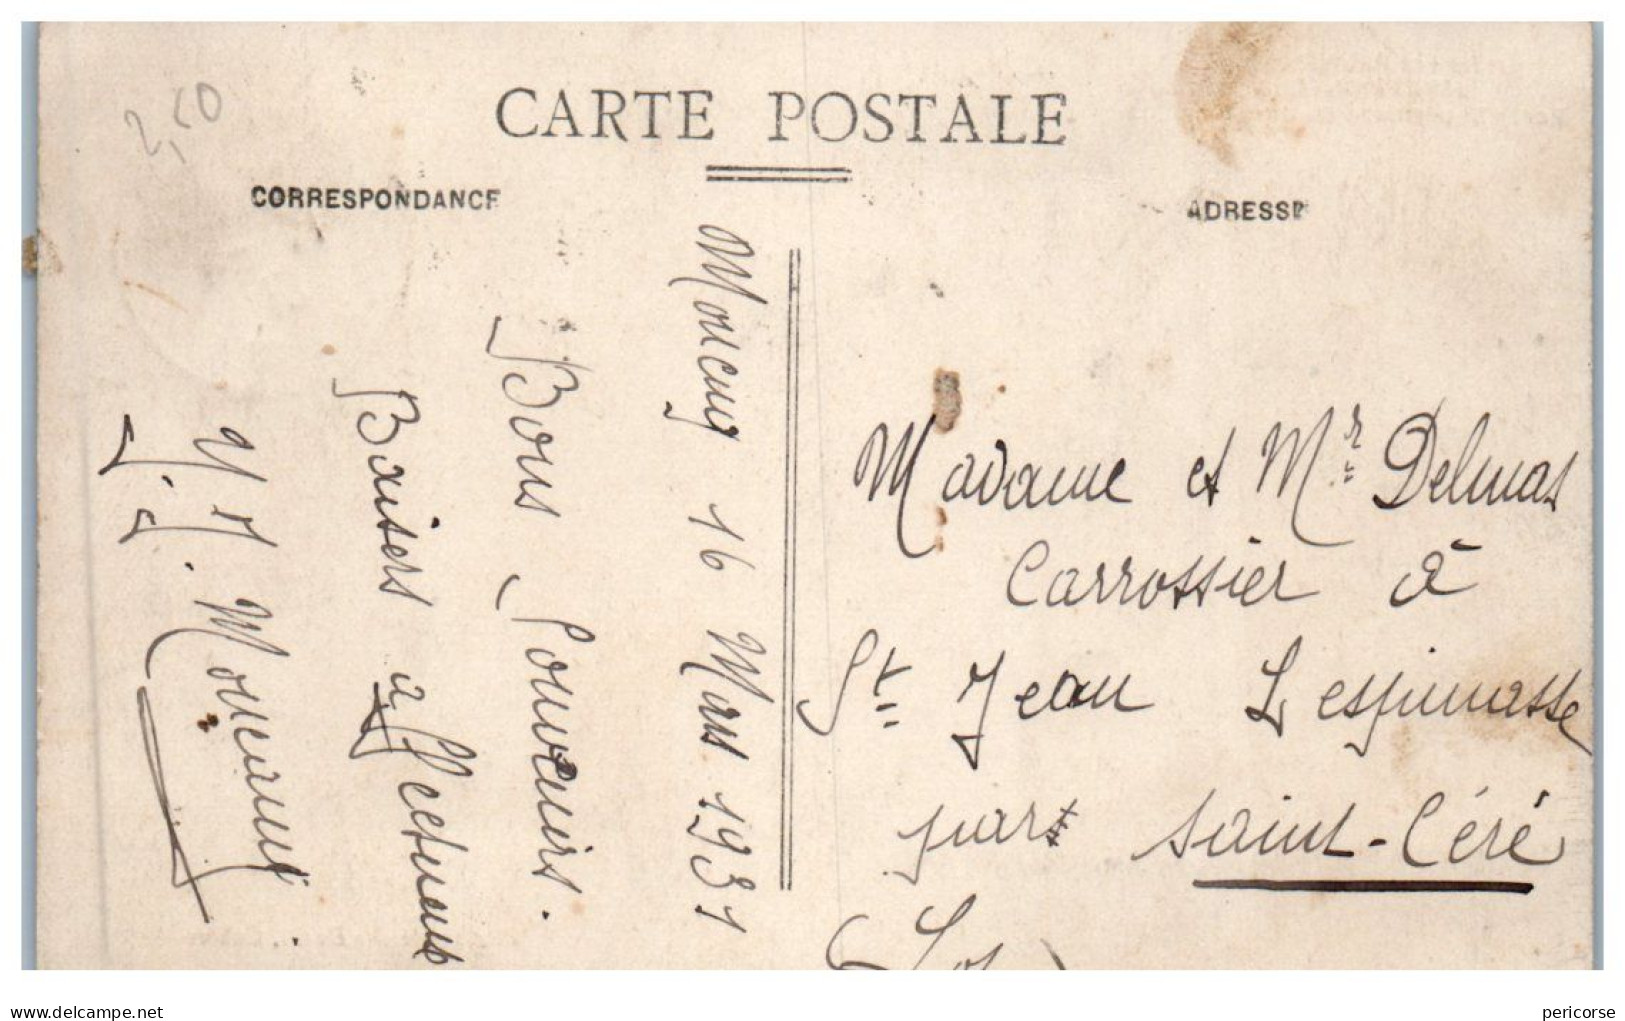 2,50
CARTE POSTALE
CORRESPONDANCE
ADRESSE
Moncuq 16 Mars 1931
Bons Souvenirs.
Baisers affectueux
Madame et Mr Delmas
Carrossier à
St Jean Lespinasse
par
Saint-Céré
(Lot)
www.delcampe.net
pericorse